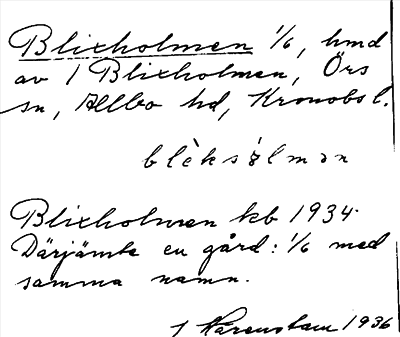 Blixholmen 1/6, hmd
av 1 Blixholmen, Örs
sn, Allbo hd, Kronobs l.
blèksòlmən
Blixholmen kb 1934.
Därjämte en gård: 1/6 med
samma namn.
1936